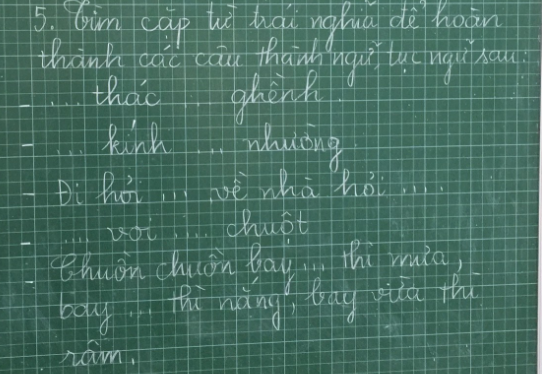 5. Tìm cặp từ trái nghĩa để hoàn
thành các câu thành ngữ, tục ngữ sau:
- ... thác ... ghềnh.
- ... kính ... nhường
- Đi hỏi ... về nhà hỏi ....
- .... voi .... chuột
- Chuồn chuồn bay ... thì mưa,
bay ... thì nắng, bay vừa thì
râm.